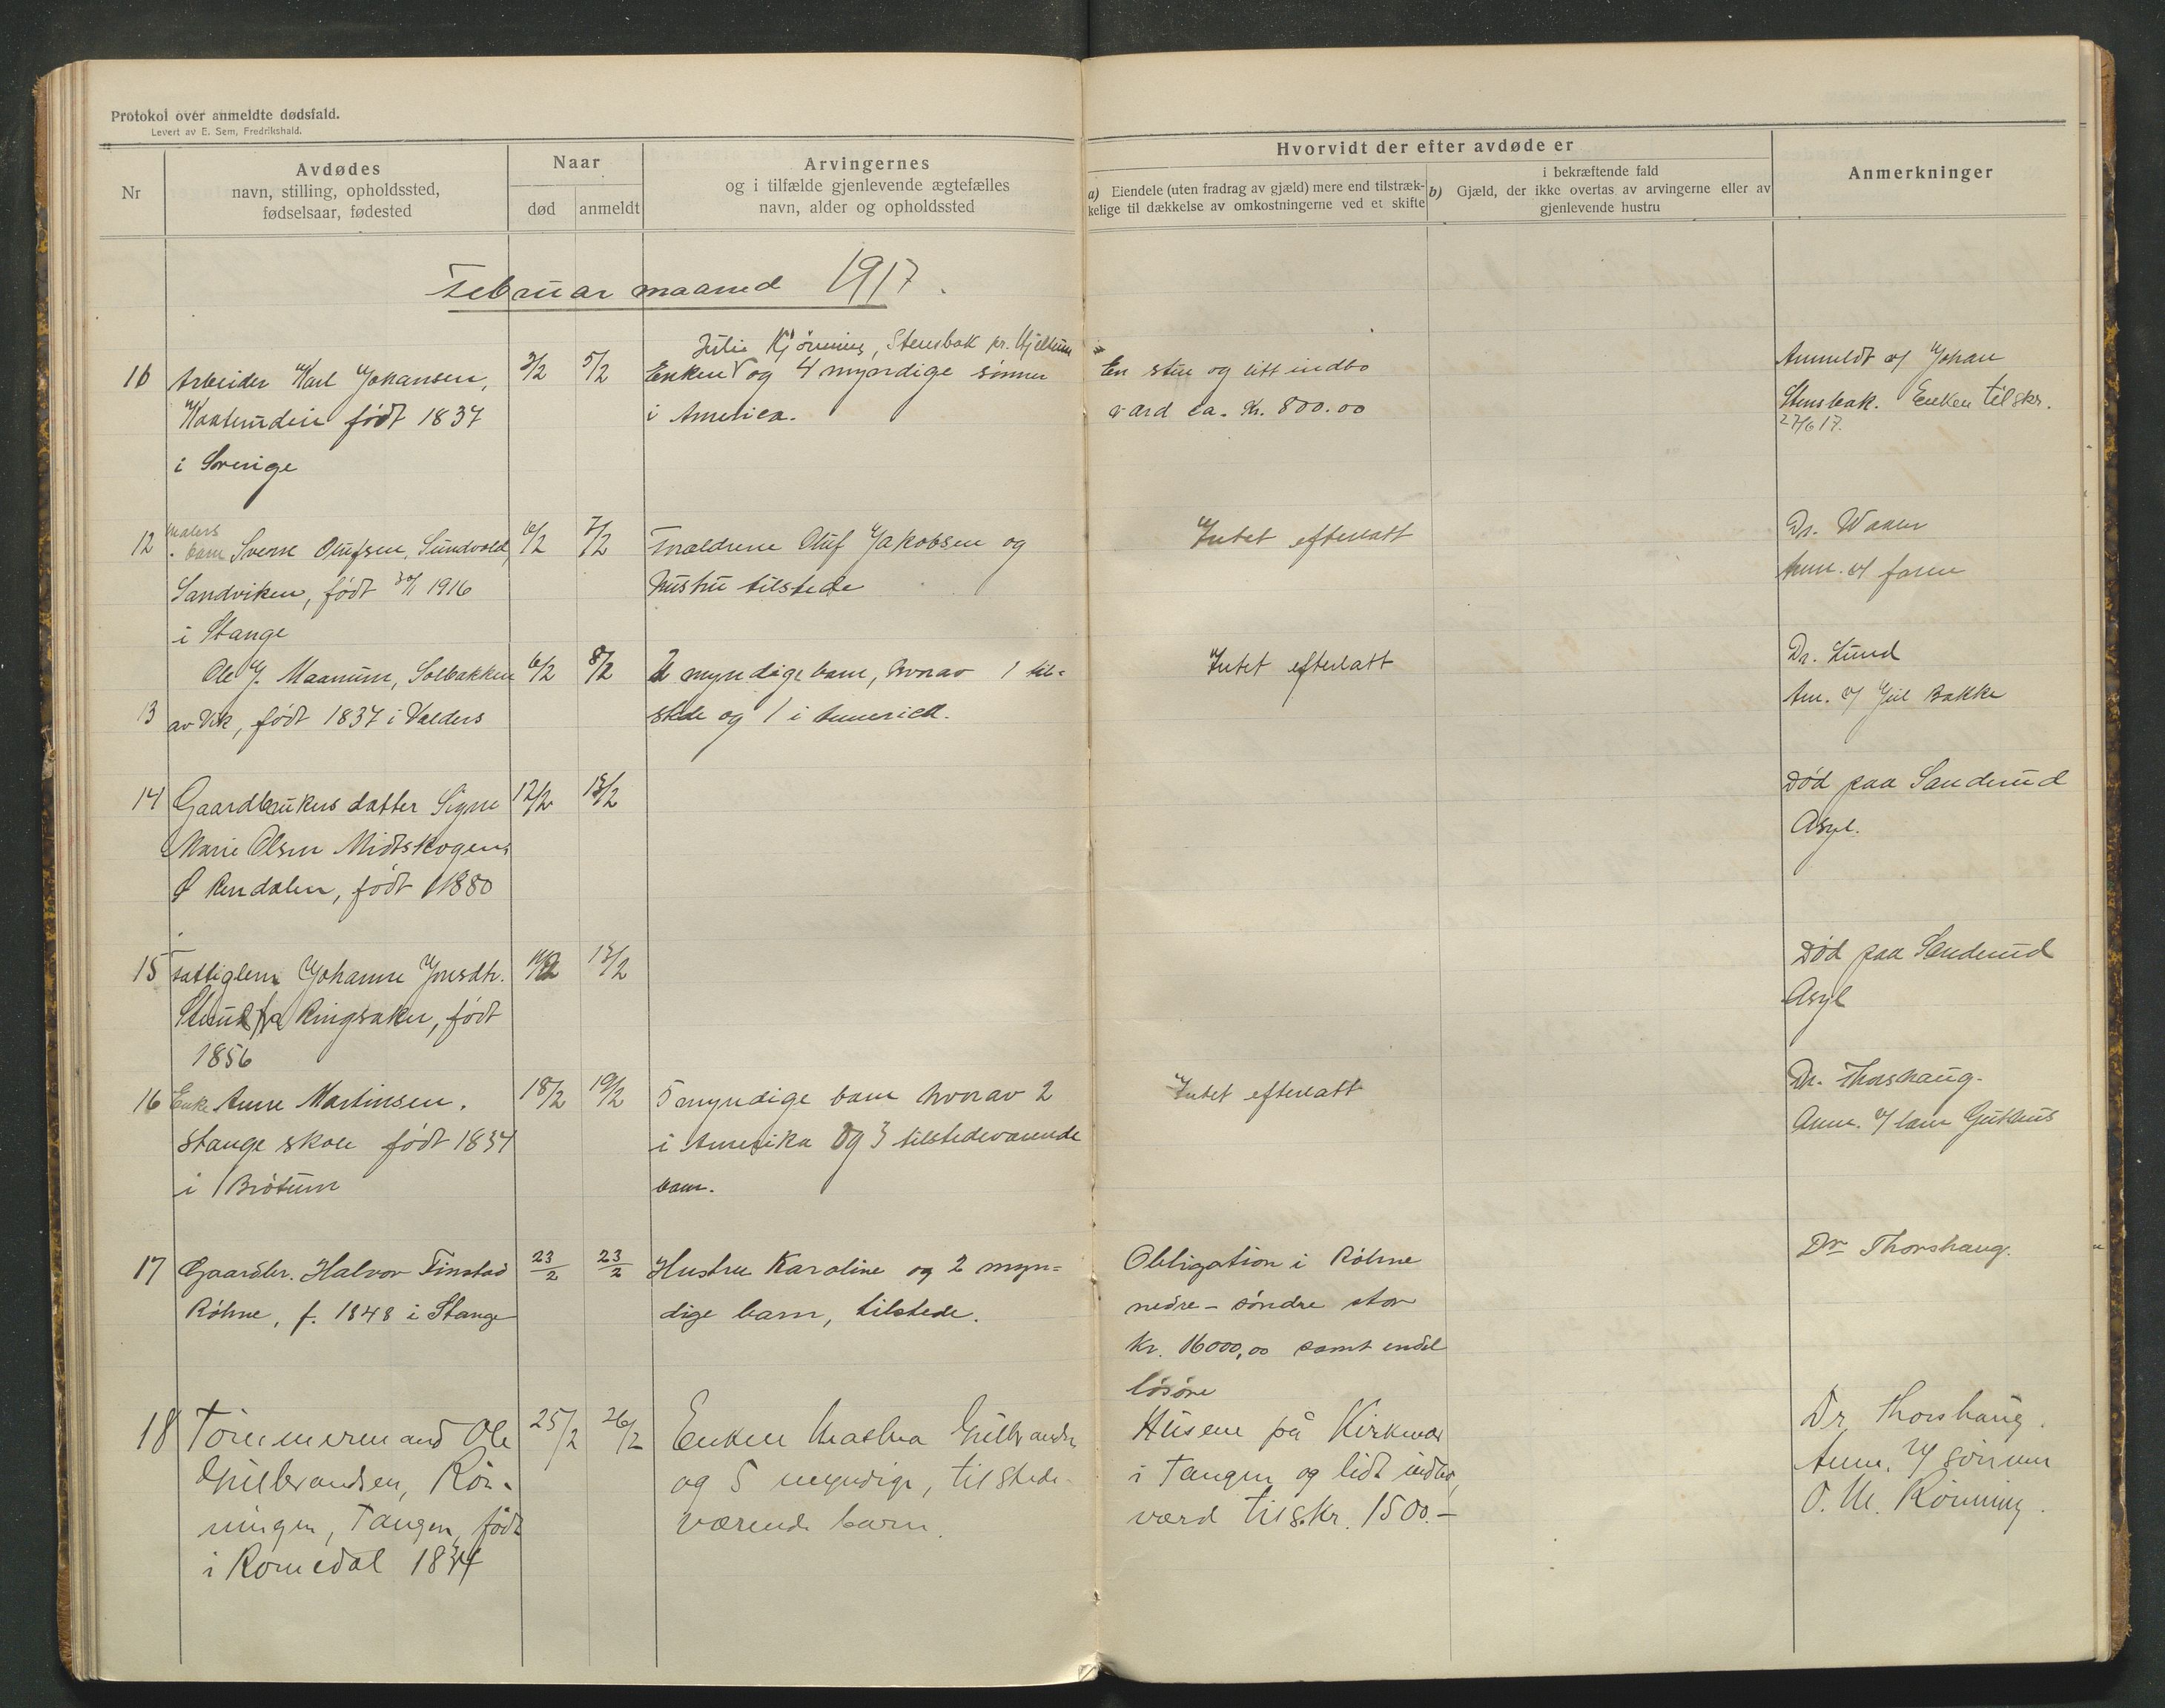 Protokol over anmeldte dødsfald.
Levert av E. Sem, Fredrikshald.
Nr
Avdødes
navn, stilling, opholdssted,
fødselsaar, fødested
Naar
død
anmeldt
Arvingernes
og i tilfælde gjenlevende ægtefælles
navn, alder og opholdssted
Hvorvidt der efter avdøde er
a) Eiendele (uten fradrag av gjæld) mere end tilstræk-
kelige til dækkelse av omkostningerne ved et skifte
i bekræftende fald
b) Gjæld, der ikke overtas av arvingerne eller av
gjenlevende hustru
Anmerkninger
Februar maaned 1917.
Arbeider Karl Johansen,
født 1837
i Sverige
3/2
5/2
Julie Stensbak pr.
Enken og 4 myndige sønner
i America.
En stue og litt indbo
værd ca. Kr. 800.00
Anmeldt af Johan
Stensbak. Enken tilskr.
27/6 17.
12
malers
barn Sverre Olufsen, Sundvold,
Sandviken, født 1916
i Stange
6/2
7/2
Forældrene Oluf Jakobsen og
hustru tilstede
Intet efterlatt
Dr.
Anm. af faren
13
Ole J. Maanum, Solbakken
av Vik, født 1837 i Valders
6/2
8/2
2 myndige barn, hvorav 1 til-
stede og 1 i America.
Intet efterlatt
Dr. Lund
Am. af Bakke
14
Gaardbrukers datter Signe
Marie Olsen Midtskogen,
Ø Rendalen, født 1880
12/2
15/2
Død paa Sanderud
Asyl.
15
Fattiglem Johanne Jonsdtr.
fra Ringsaker, født
1856
15/2
Død paa Sanderud
Asyl
16
Enke Anne Martinsen.
Stange skole født 1834
i Brøtum
18/2
19/2
5 myndige barn hvorav 2
i Amerika og 3 tilstedeværende
barn.
Intet efterlatt
Dr. Thorshaug.
Anm. af
17
Gaardbr. Halvor Finstad
Røhne, f. 1848 i Stange
23/2
23/2
Hustru Karoline og 2 myn=
dige barn, tilstede.
Obligation i Røhne
nedre - søndre stor
Kr. 16000,00 samt endel
løsøre
Dr Thorshaug.
18
Tømmermand Ole
Gulbrandsen, Røn-
ningen, Tangen, født
i Romedal 1834
25/2
26/2
Enken Mathea Gulbrandsn
og 5 myndige, tilstede-
værende barn.
Husene på
i Tangen og lidt indbo,
værd tils. kr. 1500.-
Dr Thorshaug.
Anm. af sønnen
O. M. Rønning.